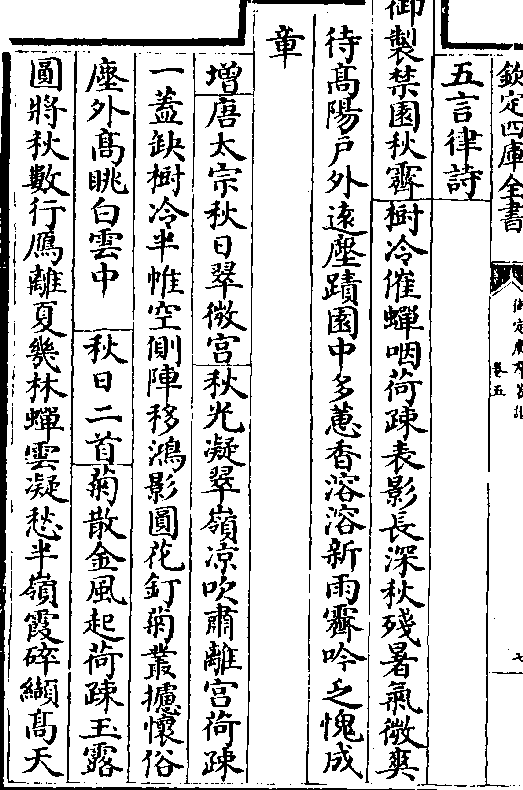 欽定四庫全書
御定廣羣芳譜
卷五
七
五言律詩
御製禁園秋霽樹冷催蟬咽荷疎表影長深秋殘暑氣微爽
待髙陽戶外遠塵蹟園中多蕙香溶溶新雨霽吟乏愧成
章
增唐太宗秋日翠微宮秋光凝翠嶺凉吹肅離宮荷疎
一葢缺樹冷半帷空側陣移鴻影圓花釘菊叢攄懷俗
塵外髙眺白雲中 秋日二首菊散金風起荷疎玉露
圓將秋數行鴈離夏幾林蟬雲凝愁半嶺霞碎纈髙天